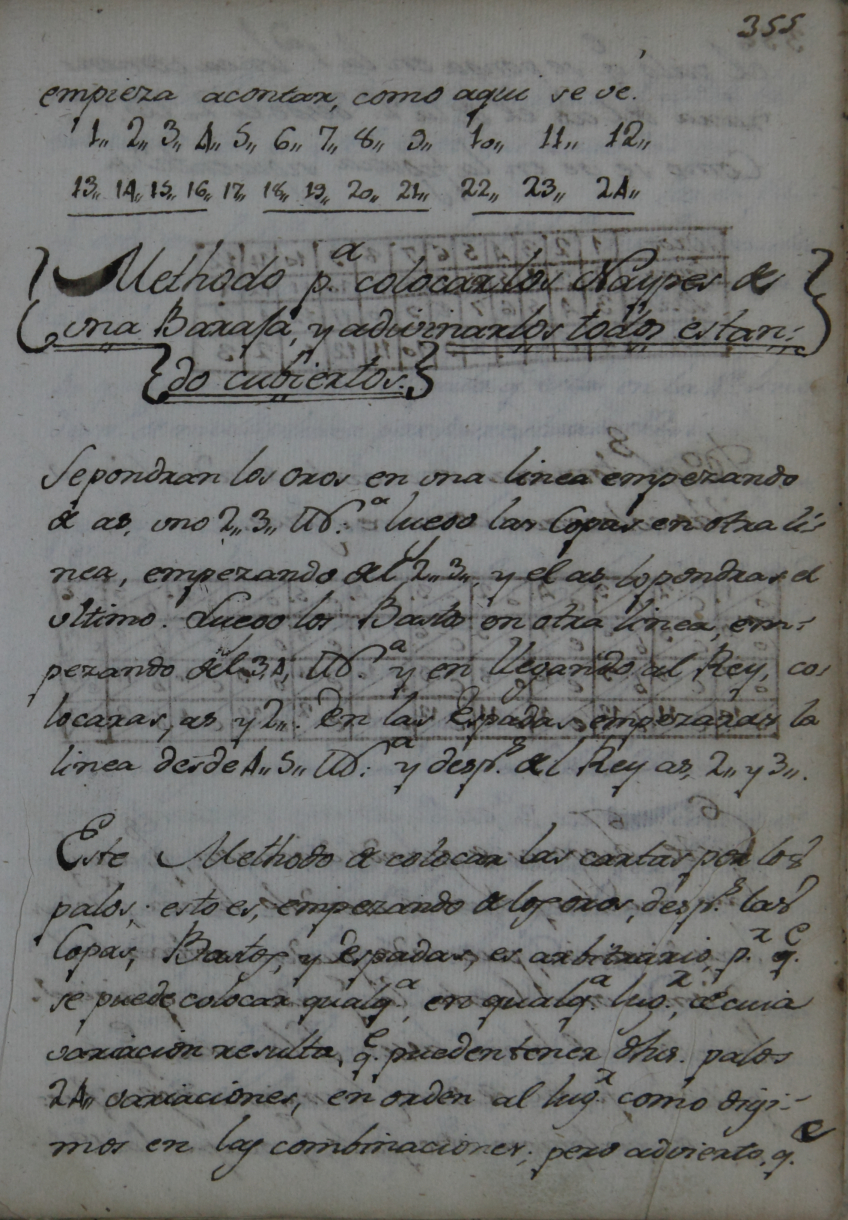 355
empieza acontar, como aqui se ve.
1,, 2,, 3,, 4,, 5,, 6,, 7,, 8,, 9,, 10,, 11,, 12,,
13,, 14,, 15,, 16,, 17,, 18,, 19,, 20,, 21,, 22,, 23,, 24,,
Methodo p.ª colocar los Naypes de
una Baraja, y adivinarlos todos estan-
do cubiertos.
Sepondran los oros en una linea empezando
de as, uno 2,, 3,, luego las Copas en otra li-
nea, empezando del 2,, 3,, y el as, lo pondras el
ultimo. Luego los Bastos en otra linea, em-
pezando del 3,, 4,, y en llegando al Rey, co-
locaras, as y 2,,. En las Espadas empezaras la
linea desde 4,, 5,, y desp.s del Rey as, 2,, y 3,,.
Este Methodo de colocar las cartas por los
palos, esto es, empezando de los oros, desp.s las
Copas, Bastos, y Espadas, es arbitrario, p.r q.e
se puede colocar qualq.ª, en qualq.ª lug.r, de cuia
variacion resulta, q.e pueden tener dhos. palos
24,, variaciones, en orden al lug.r como digi-
mos en las combinaciones; pero advierto, q.e